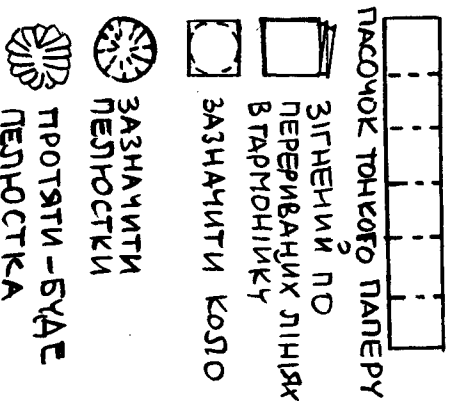 ПАСОЧОК ТОНКОГО ПАПЕРУ
ЗІГНЕНИЙ ПО
ПЕРЕРИВАНИХ ЛІНІЯХ
В ГАРМОНІЙКУ
ЗАЗНАЧИТИ КОЛО
ЗАЗНАЧИТИ
ПЕЛЮСТКИ
ПРОТЯТИ – БУДЕ
ПЕЛЮСТКА